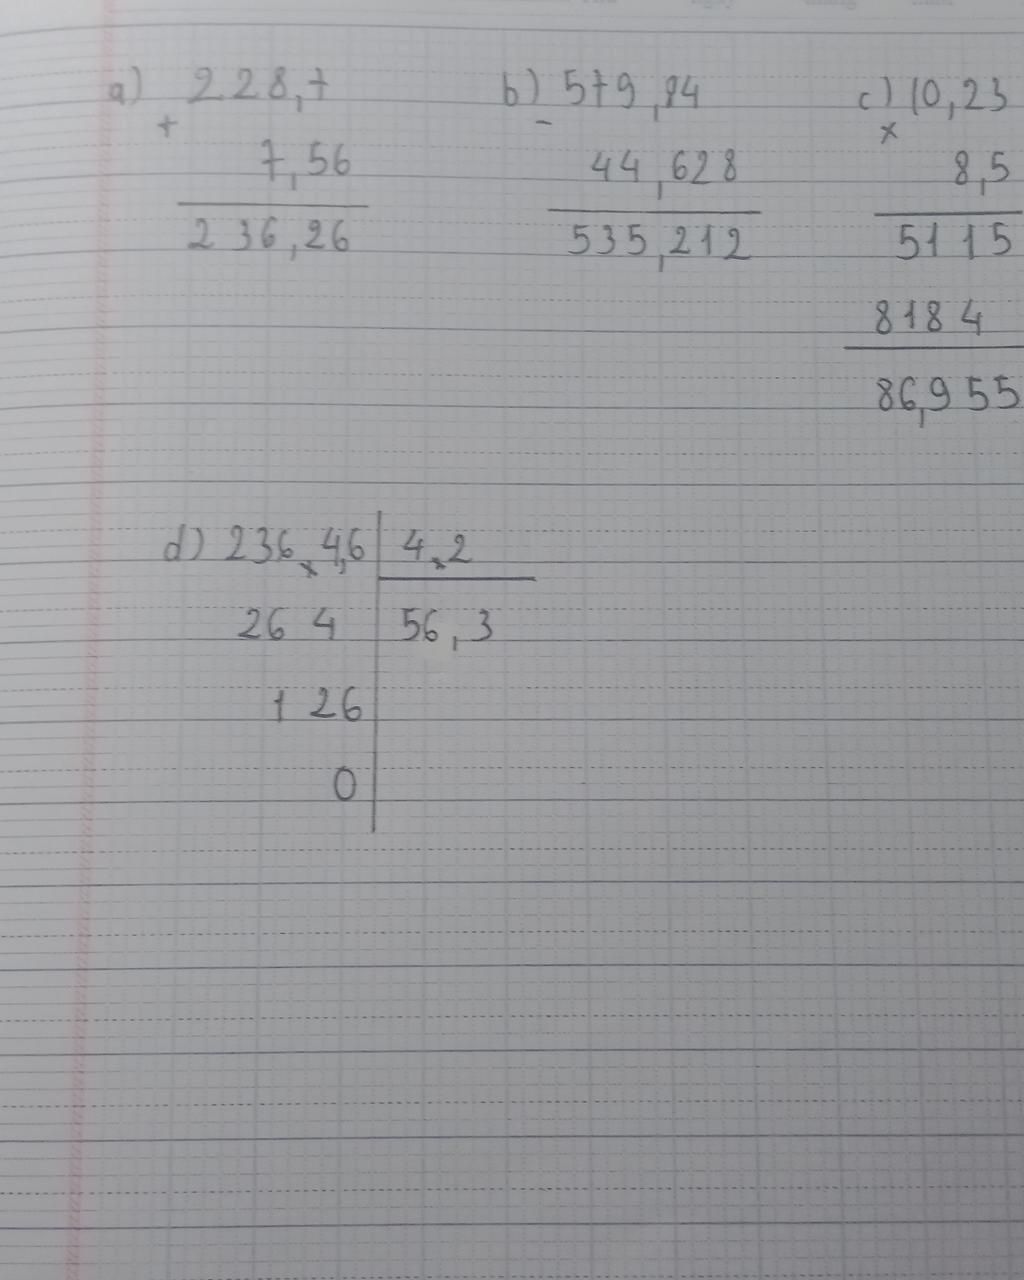 a) 228,7 b) 579,84 c) 10,23
+ - x
7,56 44,628 8,5
236,26 535,212 5115
8184
86,955
d) 236x4,6 4x2
264 56,3
126
0